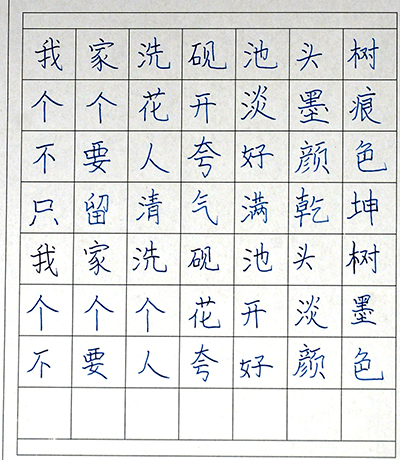 我家洗砚池头树
个个花开淡墨痕
不要人夸好颜色
只留清气满乾坤
我家洗砚池头树
个个个花开淡墨
不要人夸好颜色